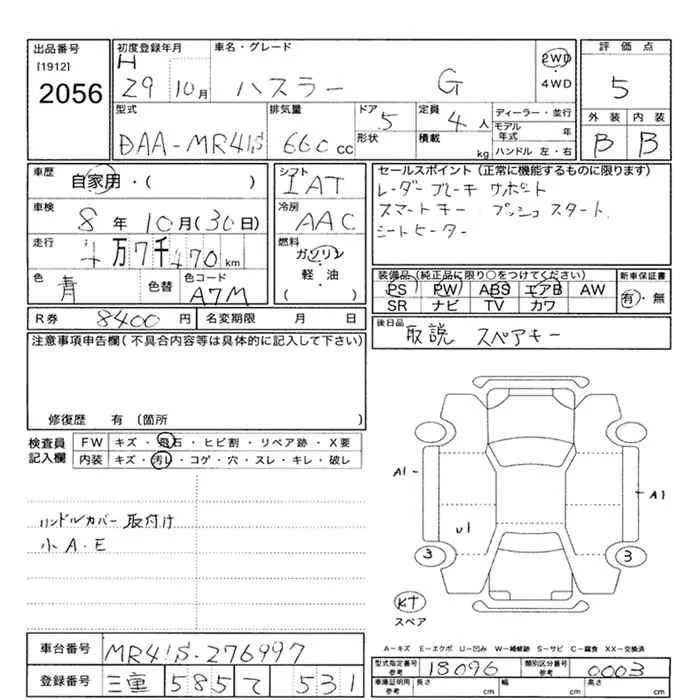 出品番号 初度登録年月 車名・グレード 評価点
[1912] H 2WD
2056 29 10月 ハスラー G ・4WD 5
型式 排気量 ドア 定員 ディーラー・並行 外装 内装
DAA-MR41S 660cc 5 4人 モデル年式 年 B B
形状 積載 kg ハンドル 左・右
車歴 自家用・( ) シフト IAT セールスポイント(正常に機能するものに限ります)
レーダーブレーキサポート
車検 8年10月(30日) 冷房 AAC スマートキー プッシュスタート
走行 4万7千470km 燃料 ガソリン シートヒーター
軽・油
( )
色 青 色替 色コード A7M
装備品(純正品に限り○をつけてください) 新車保証書
PS PW ABS エアB AW 有・無
SR ナビ TV カワ
R券 8400円 名変期限 月 日 後日品 取説 スペアキー
注意事項申告欄(不具合内容等は具体的に記入して下さい)
修復歴 有 (箇所 )
検査員記入欄 FW キズ・飛石・ヒビ割・リペア跡・X要
内装 キズ・汚レ・コゲ・穴・スレ・キレ・破レ
A1 A1
U1
ハンドルカバー取付け
小A・E
3 3
KT
スペア
A−キズ E−エクボ U−凹み W−補修跡 S−サビ C−腐食 XX−交換済
車台番号 MR41S-276997
型式指定番号 参考 18096 類別区分番号 参考 0003
登録番号 三重 585 て 531
車庫証明用 参考 長さ cm 幅 cm 高さ cm